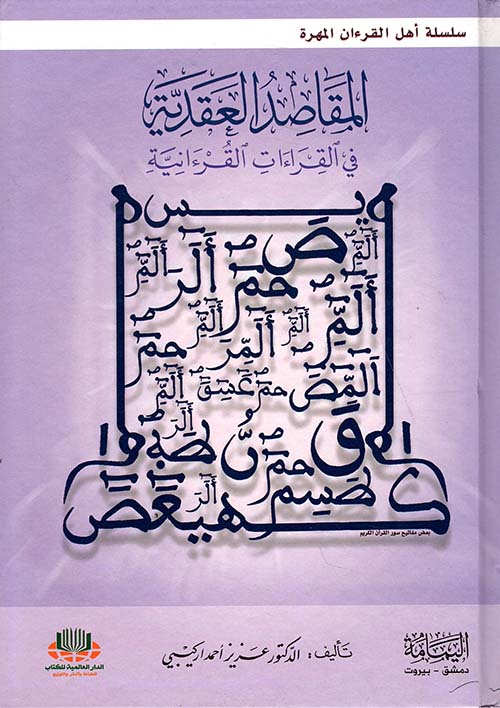 سلسلة أهل القرءان المهرة
المقاصد العقدية
في القراءات القرءانية
يس
الٓمٓ
صٓ
الٓر
حمٓ
الٓمٓ
الٓمٓ
الٓمٓر
الٓمٓ
حمٓ
الٓمٓصٓ
حمٓ عٓسٓقٓ
الٓمٓ
الٓر
قٓ
نٓ
طه
حمٓ
طسٓمٓ
الٓر
كٓهيعٓصٓ
بعض مفاتيح سور القرآن الكريم
تأليف: الدكتور عزيز أحمد اركيبي
اليمامة
دمشق - بيروت
الدار العالمية للكتاب
للطباعة والنشر والتوزيع